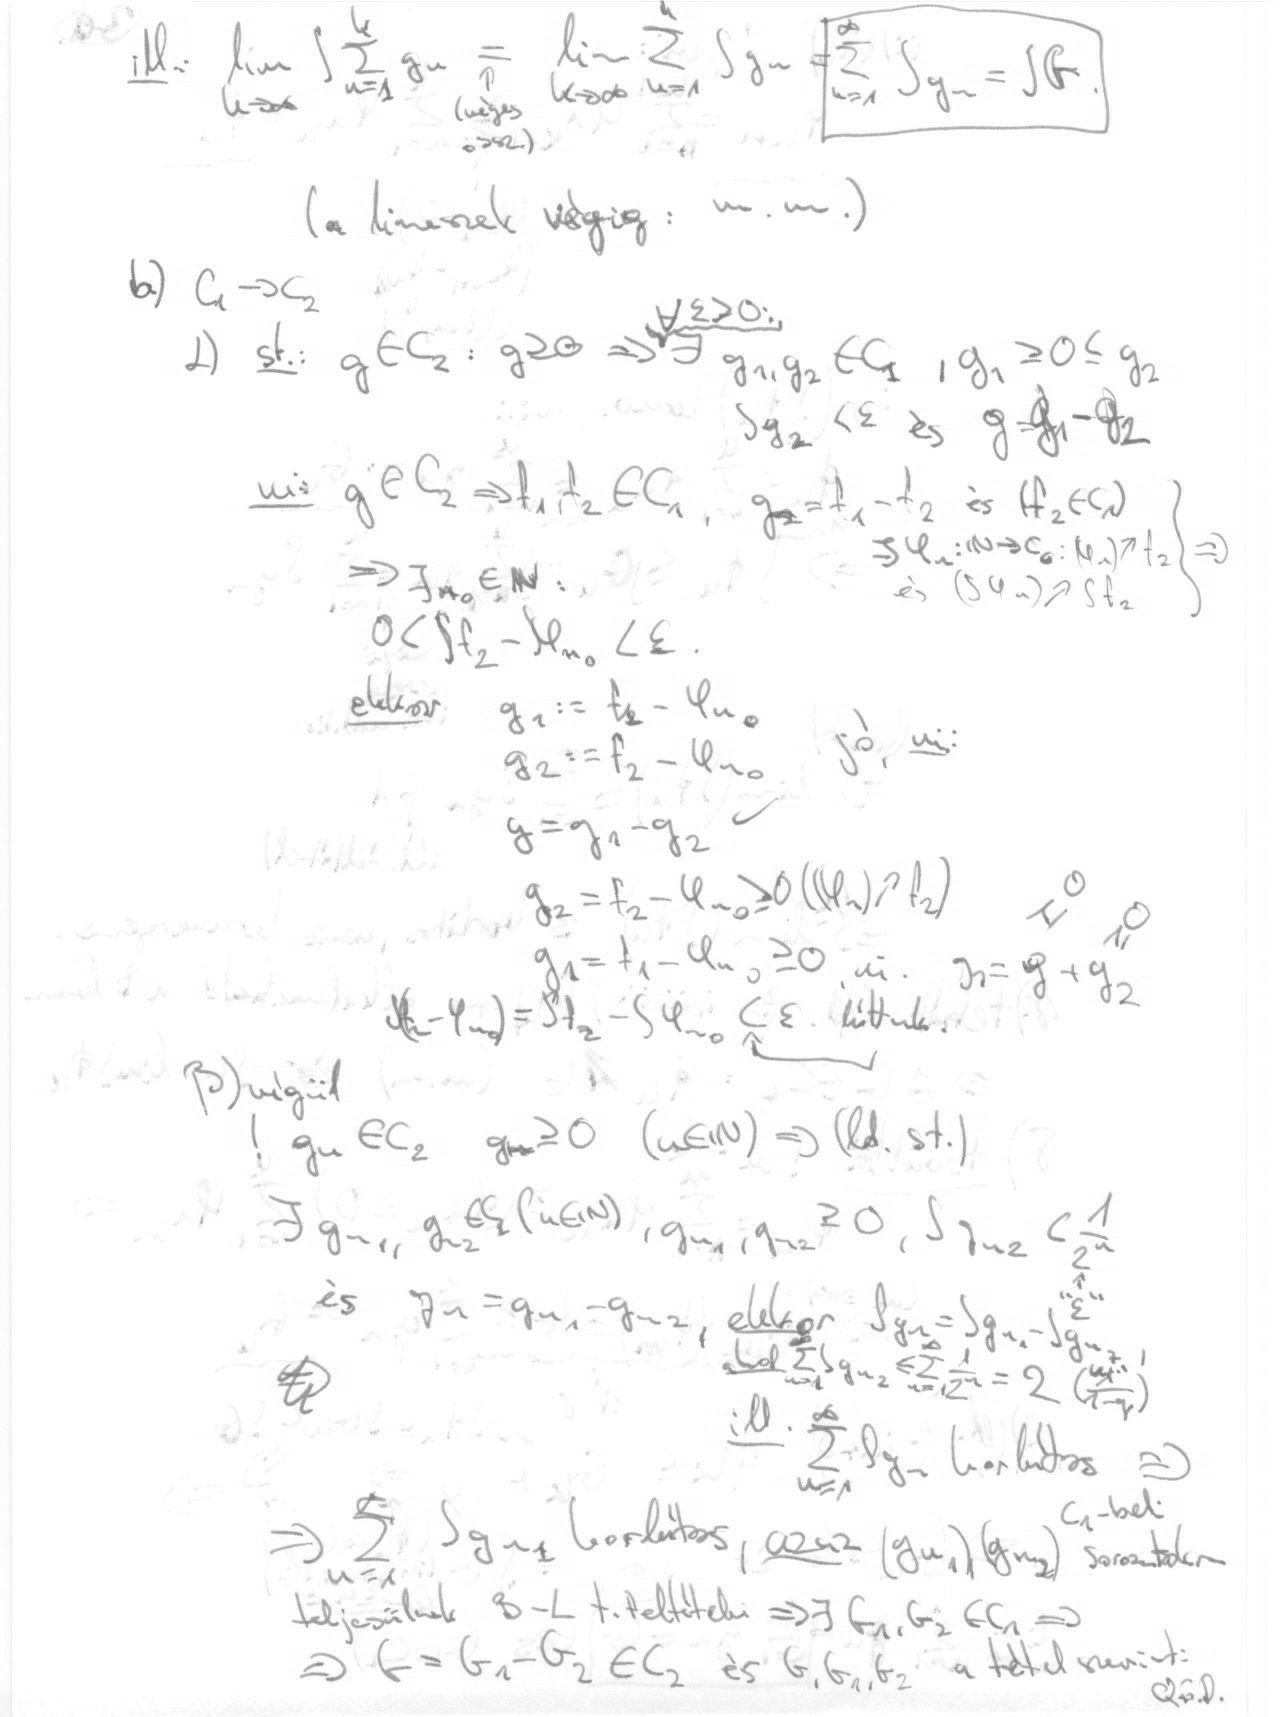 ill.: lim_{k→∞} ∫ Σ_{n=1}^{k} g_n = lim_{k→∞} Σ_{n=1}^{k} ∫ g_n = Σ_{n=1}^{∞} ∫ g_n = ∫ G.
↑ (véges össz.)
(a limeszek végig: m. m.)
b) C_1 → C_2
α) st.: g ∈ C_2 : g ≥ 0 ⇒ ∀ε>0: ∃ g_1, g_2 ∈ C_1, g_1 ≥ 0 ≤ g_2
∫ g_2 < ε és g = g_1 - g_2
ui: g ∈ C_2 ⇒ f_1, f_2 ∈ C_1, g = f_1 - f_2 és (f_2 ∈ C_1)
⇒ ∃ φ_n : ℕ → C_0 : (φ_n) ↗ f_2 } ⇒
és (∫ φ_n) ↗ ∫ f_2
⇒ ∃ n_0 ∈ ℕ :
0 < ∫ f_2 - ∫ φ_{n_0} < ε.
ekkor g_1 := f_1 - φ_{n_0}
g_2 := f_2 - φ_{n_0} jó, ui:
g = g_1 - g_2 ✓
g_2 = f_2 - φ_{n_0} ≥ 0 ((φ_n) ↗ f_2)
g_1 = f_1 - φ_{n_0} ≥ 0 ui. g_1 = g + g_2
∫(f_2 - φ_{n_0}) = ∫ f_2 - ∫ φ_{n_0} < ε láttuk.
β) végül
! g_n ∈ C_2 g_n ≥ 0 (n ∈ ℕ) ⇒ (ld. st.)
∃ g_{n1}, g_{n2} ∈ C_1 (n ∈ ℕ), g_{n1}, g_{n2} ≥ 0, ∫ g_{n2} < 1/2^n
↑ "ε"
és g_n = g_{n1} - g_{n2}, ekkor ∫ g_n = ∫ g_{n1} - ∫ g_{n2},
ahol Σ_{n=1}^{∞} ∫ g_{n2} ≤ Σ_{n=1}^{∞} 1/2^n = 2
ill. Σ_{n=1}^{∞} ∫ g_n korlátos ⇒
⇒ Σ_{n=1}^{∞} ∫ g_{n1} korlátos, azaz (g_{n1}), (g_{n2}) C_1-beli sorozatokra
teljesülnek B-L t. feltételei ⇒ ∃ G_1, G_2 ∈ C_1 ⇒
⇒ G = G_1 - G_2 ∈ C_2 és G, G_1, G_2 a tétel szerint:
Q.E.D.